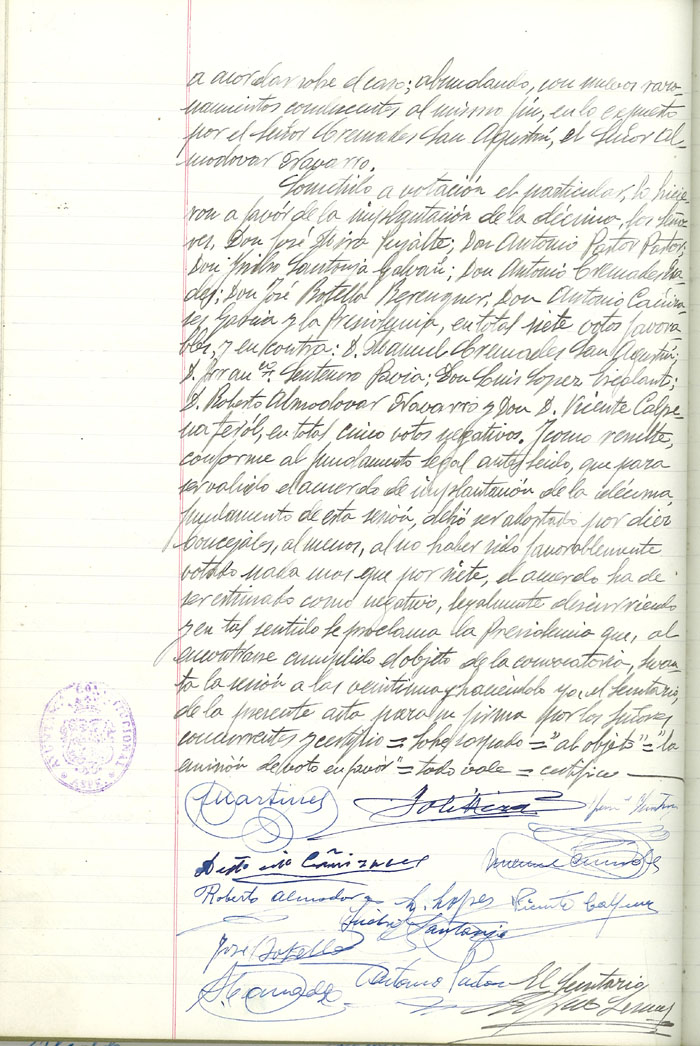 a acordar sobre el caso; abundando, con nuevos razo-
namientos conducentes al mismo fin, en lo expuesto
por el Señor Cremades San Agustín, el Señor Al-
modovar Navarro.
Sometido a votación el particular, lo hicie-
ron a favór de la implantación de la décima, los seño-
res, Don José Mira Don Antonio Pastor Pastor;
Don Isidro Santonja Galvañ; Don Antonio Cremades
Don José Botella Berenguer; Don Antonio Cañiza-
res García y la Presidencia, en total siete votos favora-
bles, y en contra: D. Manuel Cremades San Agustín;
D. Franco. Centenero Pavia; Don Luis Lopez
D. Roberto Almodovar Navarro y Don D. Vicente Calpe-
na en total cinco votos negativos. Y como resulte,
conforme al fundamento legal antes leido, que para
ser valido el acuerdo de implantación de la décima
fundamento de esta sesión, debió ser adoptado por diez
Concejales, al menos, al no haber sido favorablemente
votado nada mas que por siete, el acuerdo ha de
ser estimado como negativo, legalmente
y en tal sentido lo proclama la Presidencia que, al
encontrarse cumplido el objeto de la convocatoria, levan-
ta la sesión a las veintiuna y haciéndolo yo, el Secretario,
de la presente acta para su firma por los Señores
concurrentes y certifico = Sobre raspado = "al objeto" = "la
emisión de voto en favór" = todo vale = certifico
Martinez José Mira
Antonio Cañizares Manuel Cremades
Roberto Almodovar L. Lopez Vicente Calpena
Isidro Santonja
José Botella
A. Cremades Antonio Pastor El Secretario